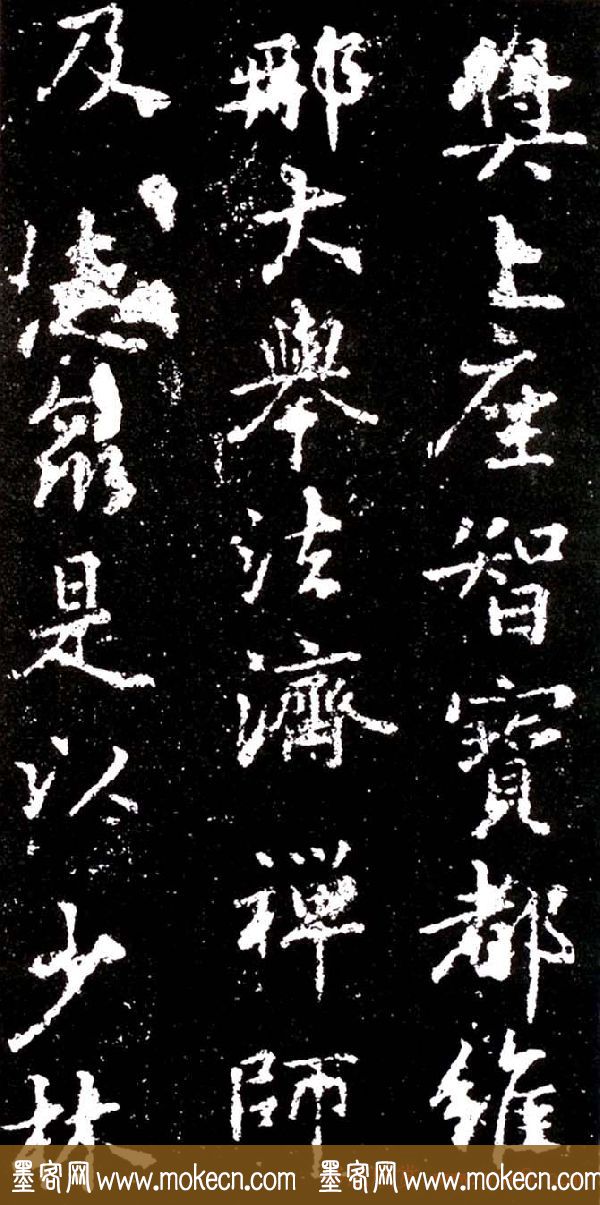 奘上座智寶都維
那大舉法濟禅師
及是以少林
墨客网 www.mokecn.com 墨客网 www.mokecn.com